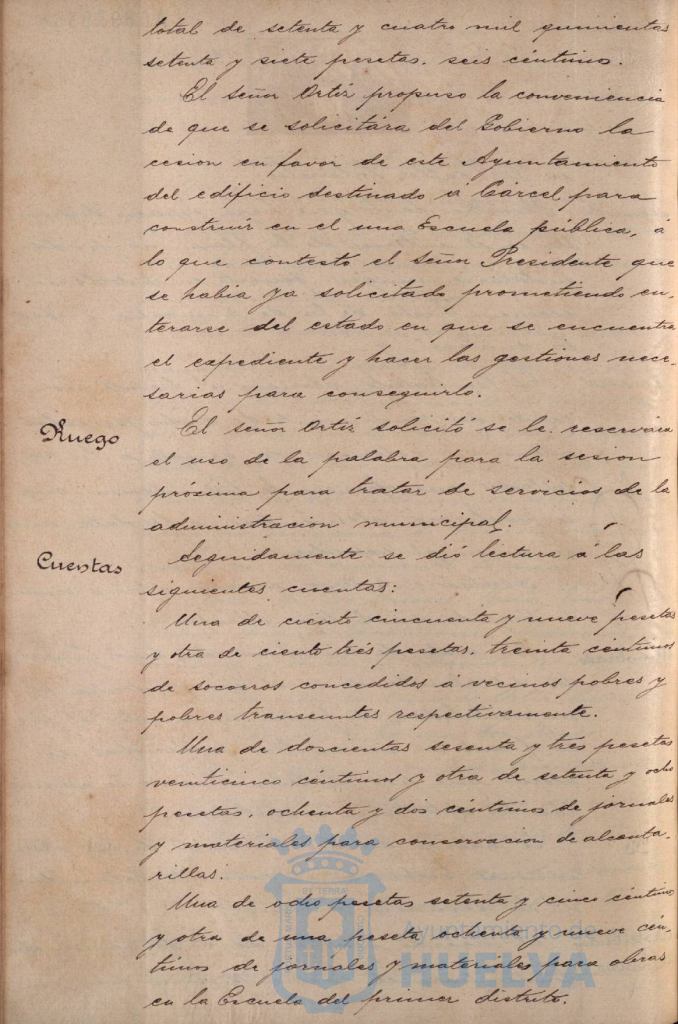 total de setenta y cuatro mil quinientas
setenta y siete pesetas. seis céntimos.
El señor Ortiz propuso la conveniencia
de que se solicitára del Gobierno la
cesion en favor de este Ayuntamiento
del edificio destinado á Cárcel para
construir en el una Escuela pública, á
lo que contestó el señor Presidente que
se habia ya solicitado prometiendo en-
terarse del estado en que se encuentra
el expediente y hacer las gestiones nece-
sarias para conseguirlo.
Ruego
El señor Ortiz solicitó se le reservára
el uso de la palabra para la sesion
próxima para tratar de servicios de la
administracion municipal.
Cuentas
Seguidamente se dió lectura á las
siguientes cuentas:
Una de ciento cincuenta y nueve pesetas
y otra de ciento trés pesetas. treinta céntimos
de socorros concedidos á vecinos pobres y
pobres transeuntes respectivamente.
Una de doscientas sesenta y tres pesetas
veinticinco céntimos y otra de setenta y ocho
pesetas. ochenta y dos céntimos de jornales
y materiales para conservacion de alcanta-
rillas.
Una de ocho pesetas setenta y cinco céntimos
y otra de una peseta ochenta y nueve cén-
timos de jornales y materiales para obras
en la Escuela del primer distrito.
Ayuntamiento de
HUELVA